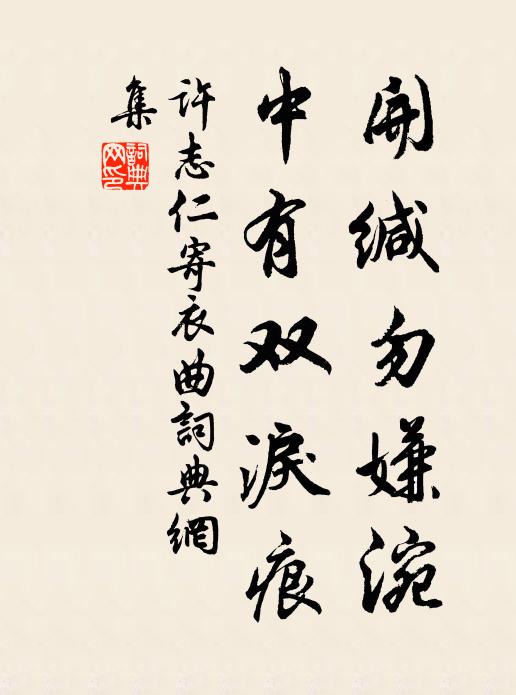 開緘勿嫌涴
中有双淚痕
許志仁寄衣曲詞典網
集
詞典
网印